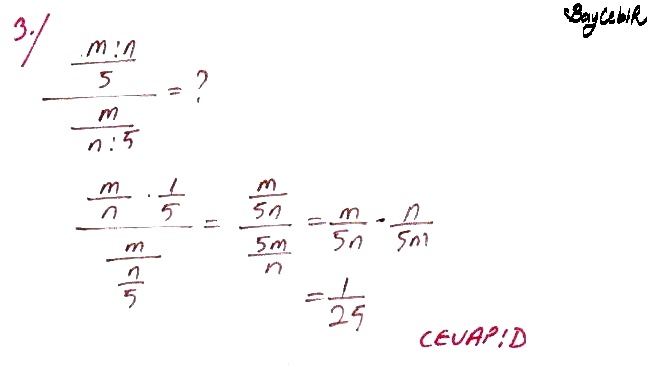 BayCebiR
3./ \frac{\frac{m:n}{5}}{\frac{m}{n:5}} = ?
\frac{\frac{m}{n} \cdot \frac{1}{5}}{\frac{m}{\frac{n}{5}}} = \frac{\frac{m}{5n}}{\frac{5m}{n}} = \frac{m}{5n} \cdot \frac{n}{5m}
= \frac{1}{25}
CEVAP:D